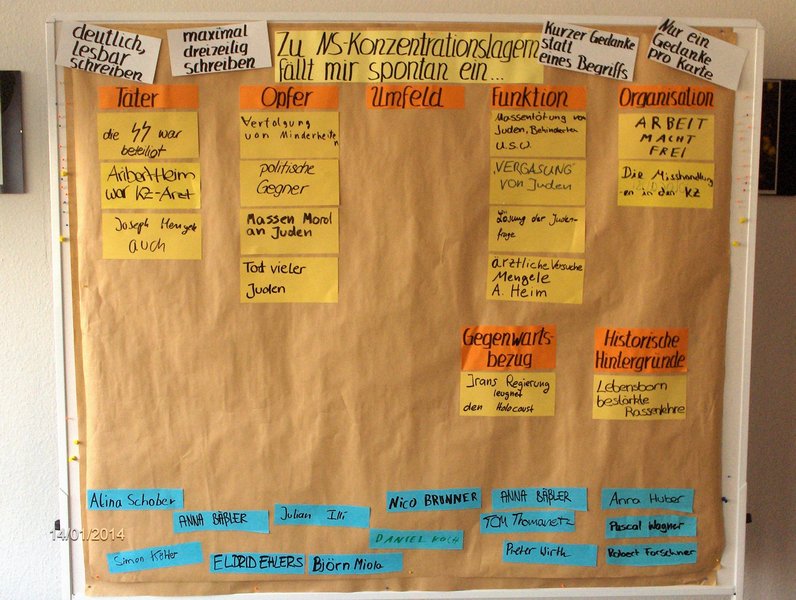 deutlich,
lesbar
schreiben
maximal
dreizeilig
schreiben
Zu NS-Konzentrationslagern
fällt mir spontan ein...
Kurzer Gedanke
statt
eines Begriffs
Nur ein
Gedanke
pro Karte
Täter
die SS war
beteiligt
Aribert Heim
war KZ-Arzt
Joseph Mengele
auch
Opfer
Verfolgung
von Minderheiten
politische
Gegner
Massen Mord
an Juden
Tod vieler
Juden
Umfeld
Funktion
Massentötung von
Juden, Behinderten
u.s.w.
VERGASUNG
von Juden
Lösung der Juden-
frage
ärztliche Versuche
Mengele
A. Heim
Organisation
ARBEIT
MACHT
FREI
Die Misshandlung
-en in den KZ
Gegenwarts-
bezug
Irans Regierung
leugnet
den Holocaust
Historische
Hintergründe
Lebensborn
bestärkte
Rassenlehre
Alina Schober
ANNA BÄßLER
Julian Illi
Nico BRUNNER
ANNA BÄßLER
Anna Huber
DANIEL KOCH
TOM Thomanetz
Pascal Wagner
Simon Kötter
ELDRID EHLERS
Björn Miola
Preter Wirth
Robert Forschner
14/01/2014